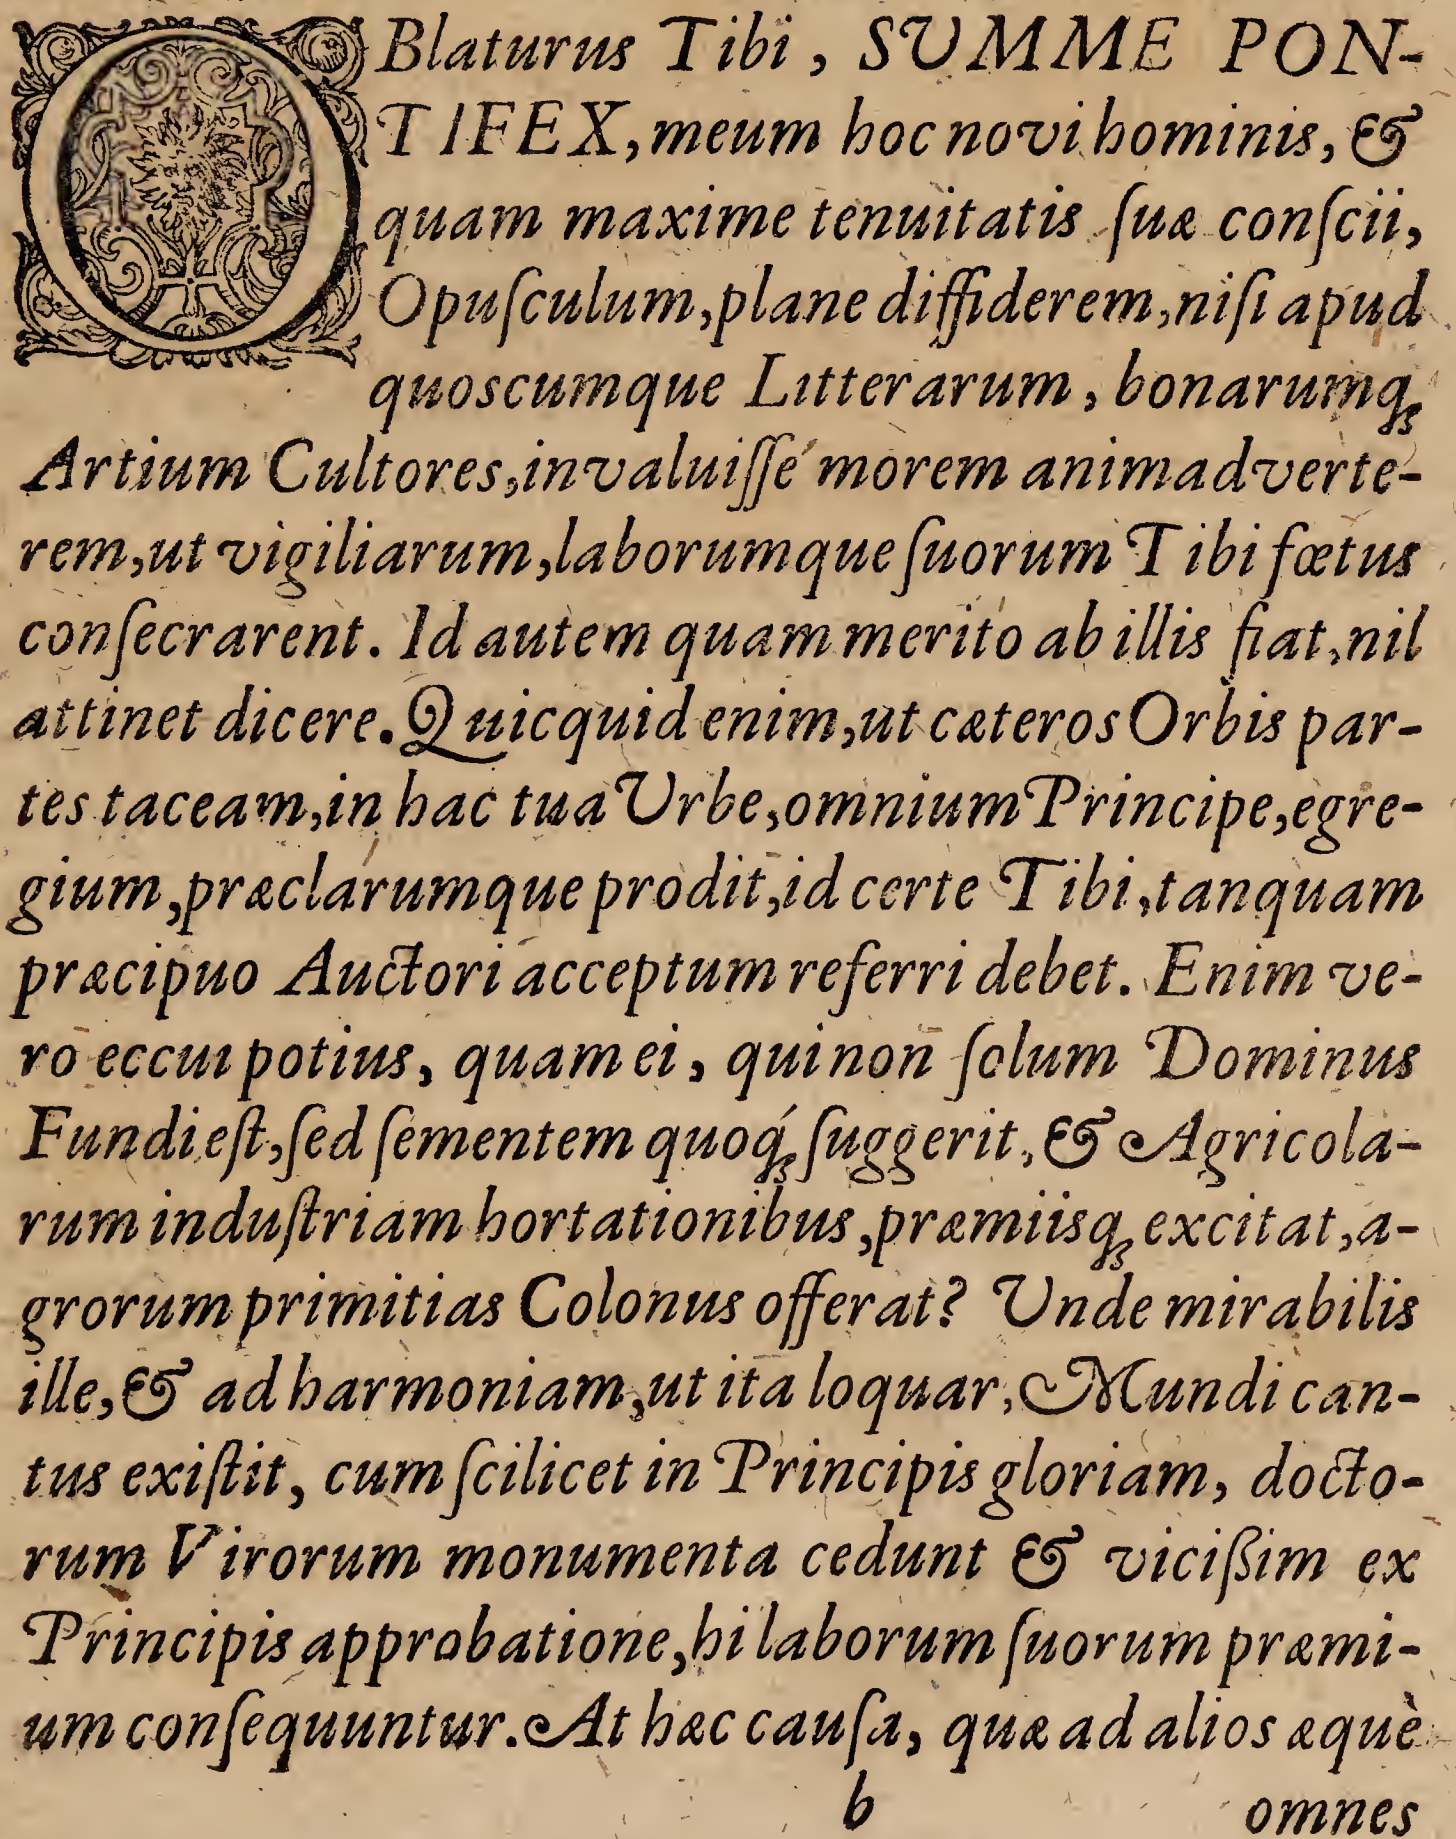 OBlaturus Tibi, SUMME PON-
TIFEX, meum hoc novi hominis, &
quam maxime tenuitatis ſuæ conſcii,
Opuſculum, plane diffiderem, niſi apud
quoscumque Litterarum, bonarumq;
Artium Cultores, invaluiſſe morem animadverte-
rem, ut vigiliarum, laborumque ſuorum Tibi fœtus
conſecrarent. Id autem quam merito ab illis fiat, nil
attinet dicere. Quicquid enim, ut cæteros Orbis par-
tes taceam, in hac tua Urbe, omnium Principe, egre-
gium, præclarumque prodit, id certe Tibi, tanquam
præcipuo Auctori acceptum referri debet. Enim ve-
ro eccui potius, quam ei, qui non ſolum Dominus
Fundi eſt, ſed ſementem quoq́; ſuggerit, & Agricola-
rum induſtriam hortationibus, præmiisq; excitat, a-
grorum primitias Colonus offerat? Unde mirabilis
ille, & ad harmoniam, ut ita loquar, Mundi can-
tus exiſtit, cum ſcilicet in Principis gloriam, docto-
rum Virorum monumenta cedunt & viciſsim ex
Principis approbatione, hi laborum ſuorum præmi-
um conſequuntur. At hæc cauſa, quæ ad alios æquè
b omnes